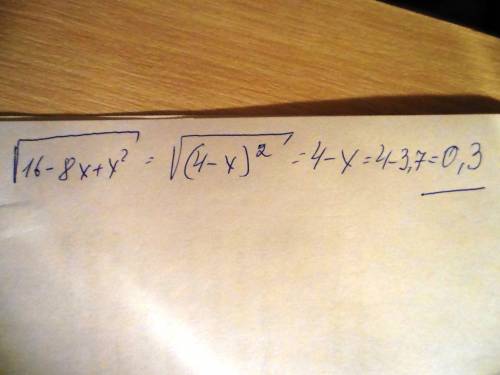 √16-8x+x² = √(4-x)² = 4-x = 4-3,7 = 0,3